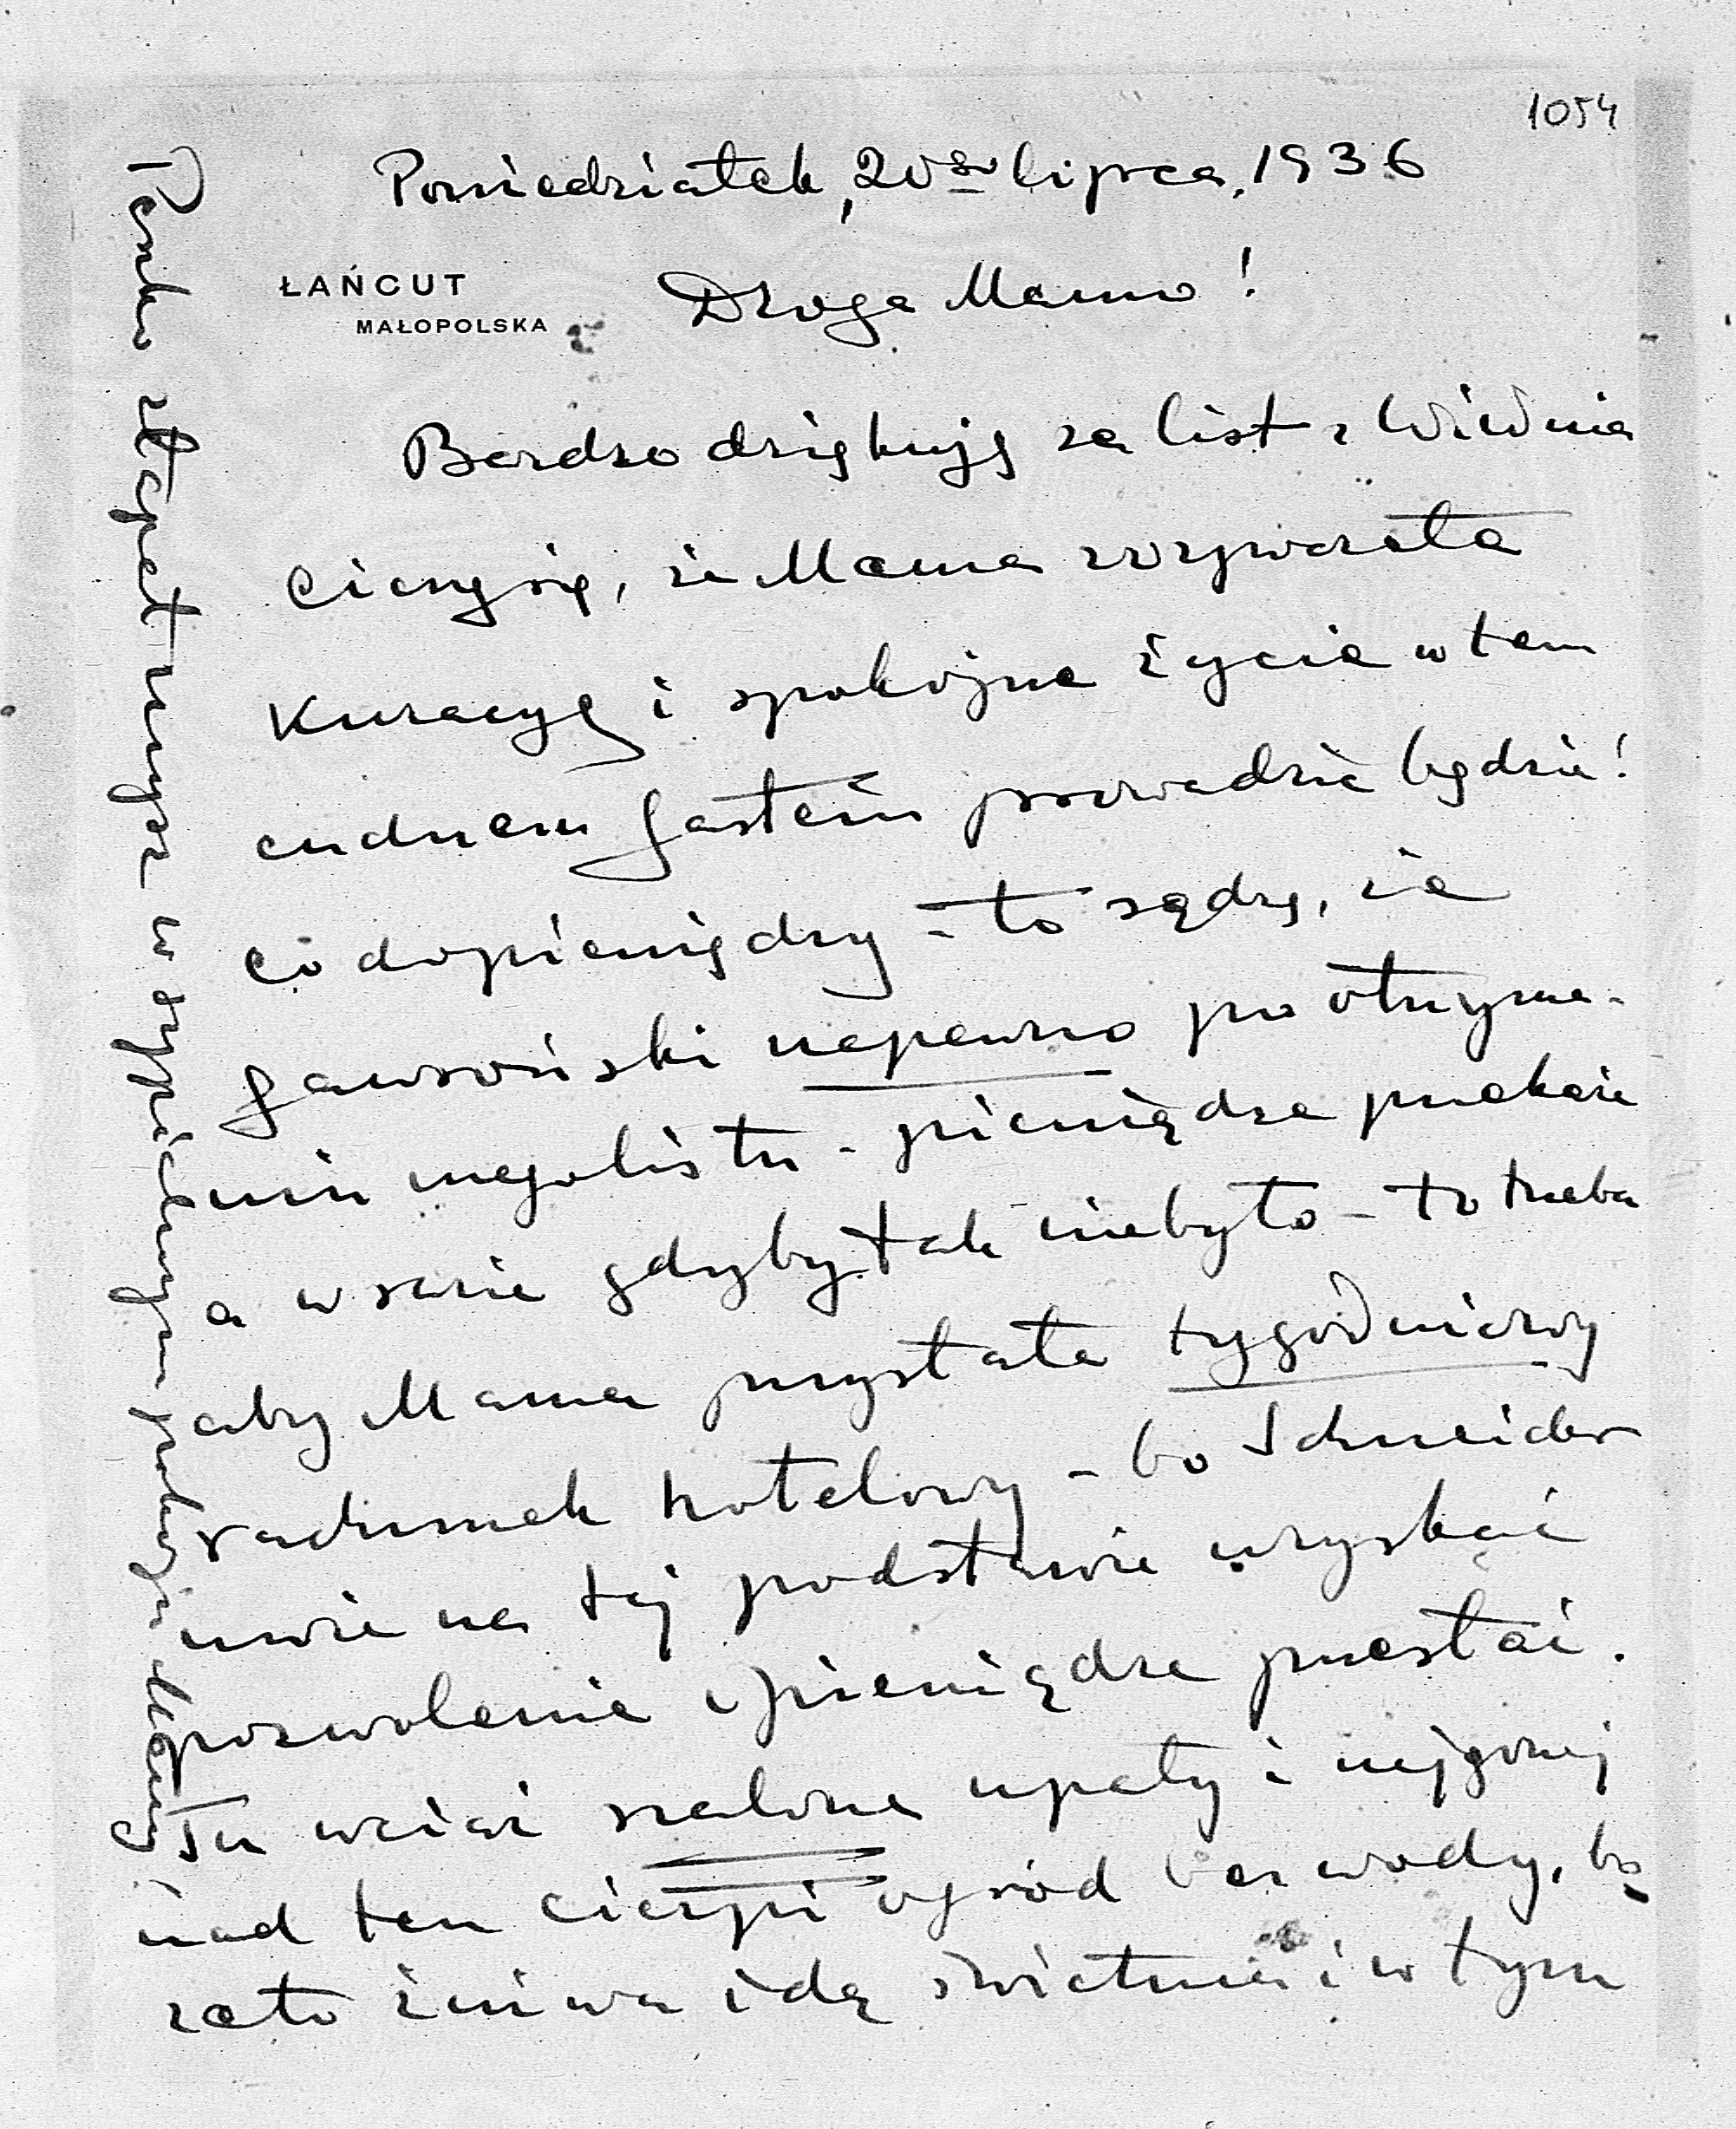 1054
Poniedziałek, 20go lipca, 1936
ŁAŃCUT
MAŁOPOLSKA
Droga Mamo!
Bardzo dziękuję za list z Wiednia
Cieszę się, że Mama rozpoczęła
Kuracyę i spokojne życie w tem
cudnem Gastein prowadzić będzie!
Co do pieniędzy - to sądzę, że
Gawroński napewno po otrzyma-
niu mego listu - pieniądze przekaże
a w razie gdyby tak niebyło - to trzeba
aby Mama przysłała tygodniowy
rachunek hotelowy - bo Schneider
umie na tej podstawie uzyskać
pozwolenie i pieniądze przesłać.
Tu wciąż szalone upały i najgorzej
nad tem cierpi ogród bez wody, bo
zato żniwa idą świetnie i w tym